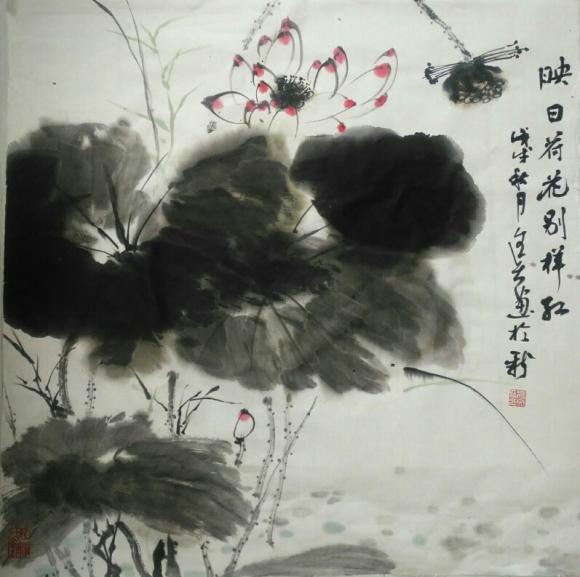 映日荷花别样红
戊戌秋月
画於